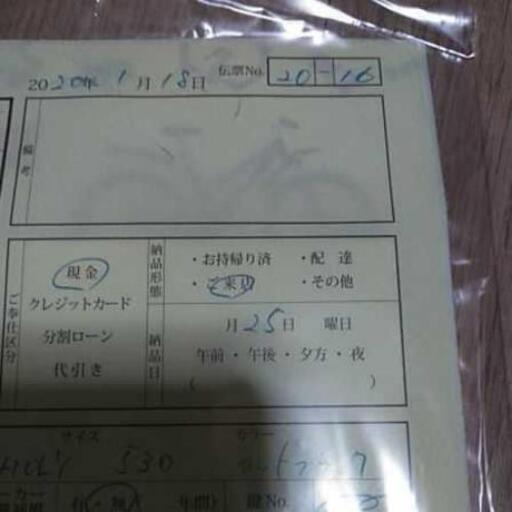 2020年 1月 18日 伝票No. 20-16
備考
ご奉仕区分
現金
クレジットカード
分割ローン
代引き
納品形態
・お持帰り済 ・配 達
・ご来店 ・その他
納品日
月 25日 曜日
午前・午後・夕方・夜
( )
サイズ カラー
530
年間) 鍵No.